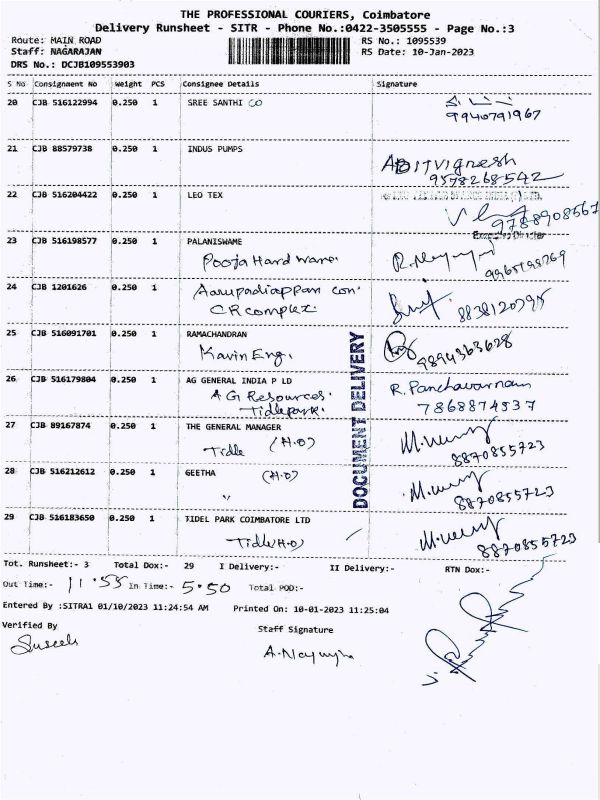 THE PROFESSIONAL COURIERS, Coimbatore
Delivery Runsheet - SITR - Phone No.:0422-3505555 - Page No.:3
Route: MAIN ROAD
Staff: NAGARAJAN
DRS No.: DCJB109553903
RS No.: 1095539
RS Date: 10-Jan-2023
S No Consignment No Weight PCS Consignee Details Signature
20 CJB 516122994 0.250 1 SREE SANTHI CO
9940791967
21 CJB 88579738 0.250 1 INDUS PUMPS
9578268542
22 CJB 516204422 0.250 1 LEO TEX
9788908567
Executive Director
23 CJB 516198577 0.250 1 PALANISWAME
Pooja Hardware.
24 CJB 1201626 0.250 1 Aarupadiappan con.
CR complex.
25 CJB 516091701 0.250 1 RAMACHANDRAN
Kavin Eng. 9894363628
26 CJB 516179804 0.250 1 AG GENERAL INDIA P LD R. Panchavarnam
A G Resources.
Tidlepark. 7868874537
27 CJB 89167874 0.250 1 THE GENERAL MANAGER
Tidle (H.O) 8870855723
28 CJB 516212612 0.250 1 GEETHA (H.O)
" 8870855723
29 CJB 516183650 0.250 1 TIDEL PARK COIMBATORE LTD
Tidle H.O) 8870855723
DOCUMENT DELIVERY
Tot. Runsheet:- 3 Total Dox:- 29 I Delivery:- II Delivery:- RTN Dox:-
Out Time:- 11.55 In Time:- 5.50 Total POD:-
Entered By :SITRA1 01/10/2023 11:24:54 AM Printed On: 10-01-2023 11:25:04
Verified By
Staff Signature